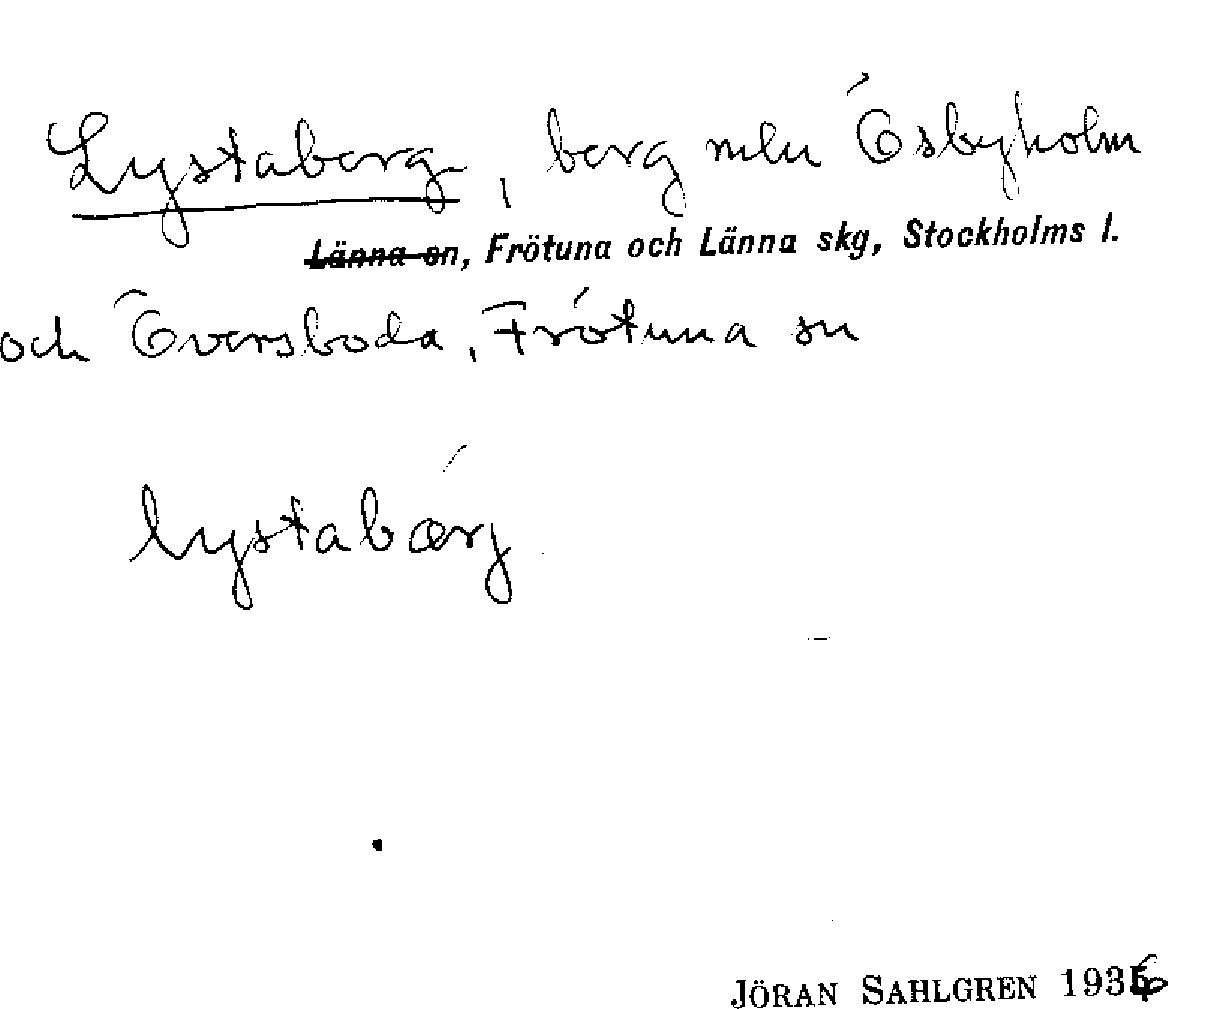 Lystaberg, berg mln Ösbyholm
Länna sn, Frötuna och Länna skg, Stockholms l.
och Översboda, Frötuna sn
lystabærj
JÖRAN SAHLGREN 1936